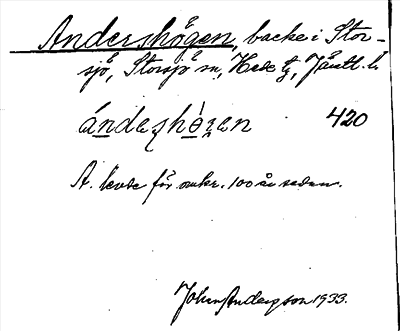 Andershögen, backe i Stor-
sjö, Storsjö sn, Hede tg, Jämtl. l.
420
A. levde för omkr. 100 år sedan.
John Anderzson 1933.